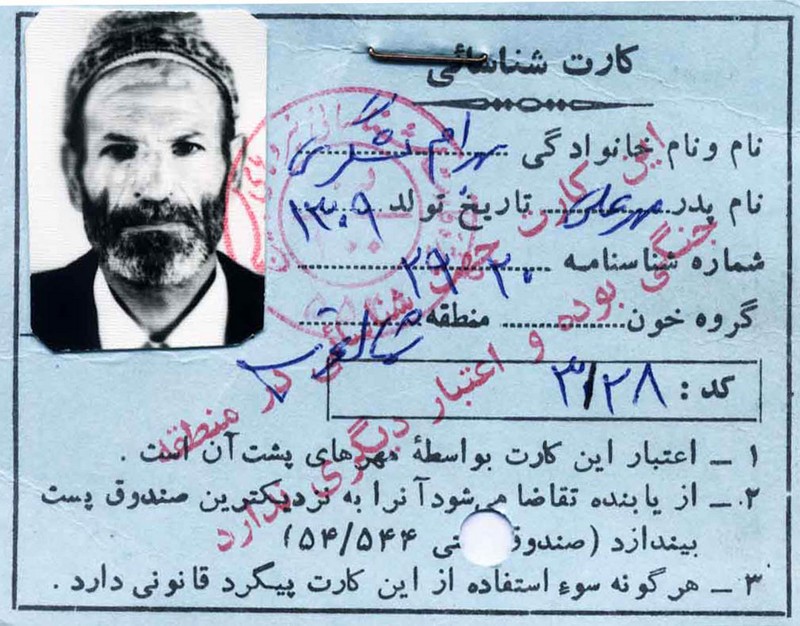 کارت شناسائی
نام و نام خانوادگی بهرام
نام پدر مهرعلی تاریخ تولد ۱۳۰۹
شماره شناسنامه ۲۹ ۳۰
گروه خون منطقه
کد : ۳/۲۸
۱ ـ اعتبار این کارت بواسطهٔ مهرهای پشت آن است .
۲ ـ از یابنده تقاضا می‌شود آنرا به نزدیکترین صندوق پست
بیندازد (صندوق ۵۴/۵۴۴)
۳ ـ هرگونه سوء استفاده از این کارت پیگرد قانونی دارد .
این کارت جهت شناسائی در منطقه
جنگی بوده و اعتبار دیگری ندارد